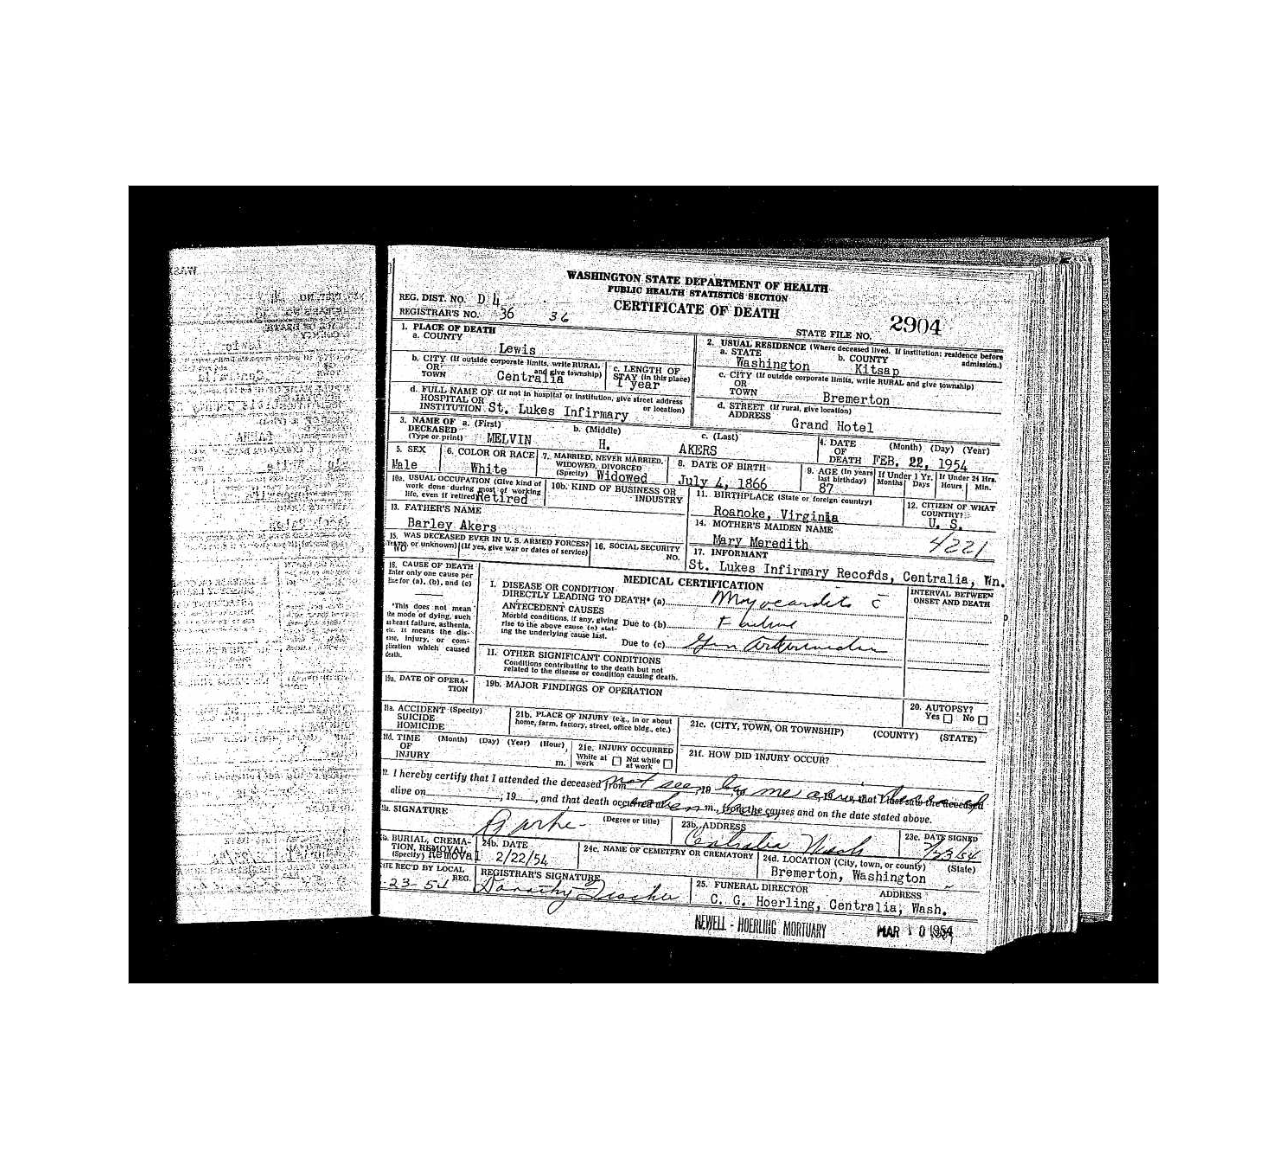 WASHINGTON STATE DEPARTMENT OF HEALTH
PUBLIC HEALTH STATISTICS SECTION
CERTIFICATE OF DEATH
REG. DIST. NO. D 4
REGISTRAR'S NO. 36 36
STATE FILE NO. 2904
1. PLACE OF DEATH
a. COUNTY
Lewis
b. CITY (If outside corporate limits, write RURAL
OR and give township)
TOWN Centralia
c. LENGTH OF
STAY (in this place)
1 year
d. FULL NAME OF (If not in hospital or institution, give street address
HOSPITAL OR or location)
INSTITUTION St. Lukes Infirmary
2. USUAL RESIDENCE (Where deceased lived. If institution: residence before
a. STATE b. COUNTY admission.)
Washington Kitsap
c. CITY (If outside corporate limits, write RURAL and give township)
OR
TOWN Bremerton
d. STREET (If rural, give location)
ADDRESS Grand Hotel
3. NAME OF a. (First) b. (Middle) c. (Last)
DECEASED
(Type or print) MELVIN H. AKERS
4. DATE (Month) (Day) (Year)
OF
DEATH FEB. 22, 1954
5. SEX
Male
6. COLOR OR RACE
White
7. MARRIED, NEVER MARRIED,
WIDOWED, DIVORCED
(Specify) Widowed
8. DATE OF BIRTH
July 4, 1866
9. AGE (In years
last birthday)
87
If Under 1 Yr.
Months Days
If Under 24 Hrs.
Hours Min.
10a. USUAL OCCUPATION (Give kind of
work done during most of working
life, even if retired) Retired
10b. KIND OF BUSINESS OR
INDUSTRY
11. BIRTHPLACE (State or foreign country)
Roanoke, Virginia
12. CITIZEN OF WHAT
COUNTRY?
U. S.
13. FATHER'S NAME
Barley Akers
14. MOTHER'S MAIDEN NAME
Mary Meredith
4221
15. WAS DECEASED EVER IN U. S. ARMED FORCES?
(Yes, no, or unknown) (If yes, give war or dates of service)
No
16. SOCIAL SECURITY
NO.
17. INFORMANT
St. Lukes Infirmary Records, Centralia, Wn.
18. CAUSE OF DEATH
Enter only one cause per
line for (a), (b), and (c)
*This does not mean
the mode of dying, such
as heart failure, asthenia,
etc. It means the dis-
ease, injury, or com-
plication which caused
death.
MEDICAL CERTIFICATION
INTERVAL BETWEEN
ONSET AND DEATH
I. DISEASE OR CONDITION
DIRECTLY LEADING TO DEATH* (a) Myocarditis c̄
ANTECEDENT CAUSES
Morbid conditions, if any, giving
rise to the above cause (a) stat-
ing the underlying cause last.
Due to (b) Failure
Due to (c) Gen
II. OTHER SIGNIFICANT CONDITIONS
Conditions contributing to the death but not
related to the disease or condition causing death.
19a. DATE OF OPERA-
TION
19b. MAJOR FINDINGS OF OPERATION
20. AUTOPSY?
Yes No
21a. ACCIDENT (Specify)
SUICIDE
HOMICIDE
21b. PLACE OF INJURY (e.g., in or about
home, farm, factory, street, office bldg., etc.)
21c. (CITY, TOWN, OR TOWNSHIP) (COUNTY) (STATE)
21d. TIME (Month) (Day) (Year) (Hour)
OF
INJURY m.
21e. INJURY OCCURRED
While at work Not while at work
21f. HOW DID INJURY OCCUR?
22. I hereby certify that I attended the deceased from not seen 19 by me
alive on , 19 , and that death occurred at m., from the causes and on the date stated above.
23a. SIGNATURE (Degree or title)
23b. ADDRESS
Centralia Wash
23c. DATE SIGNED
24a. BURIAL, CREMA-
TION, REMOVAL
(Specify) Removal
24b. DATE
2/22/54
24c. NAME OF CEMETERY OR CREMATORY
24d. LOCATION (City, town, or county) (State)
Bremerton, Washington
DATE REC'D BY LOCAL
REG.
-23-54
REGISTRAR'S SIGNATURE
Dorothy
25. FUNERAL DIRECTOR ADDRESS
C. G. Hoerling, Centralia, Wash.
NEWELL - HOERLING MORTUARY
MAR 10 1954